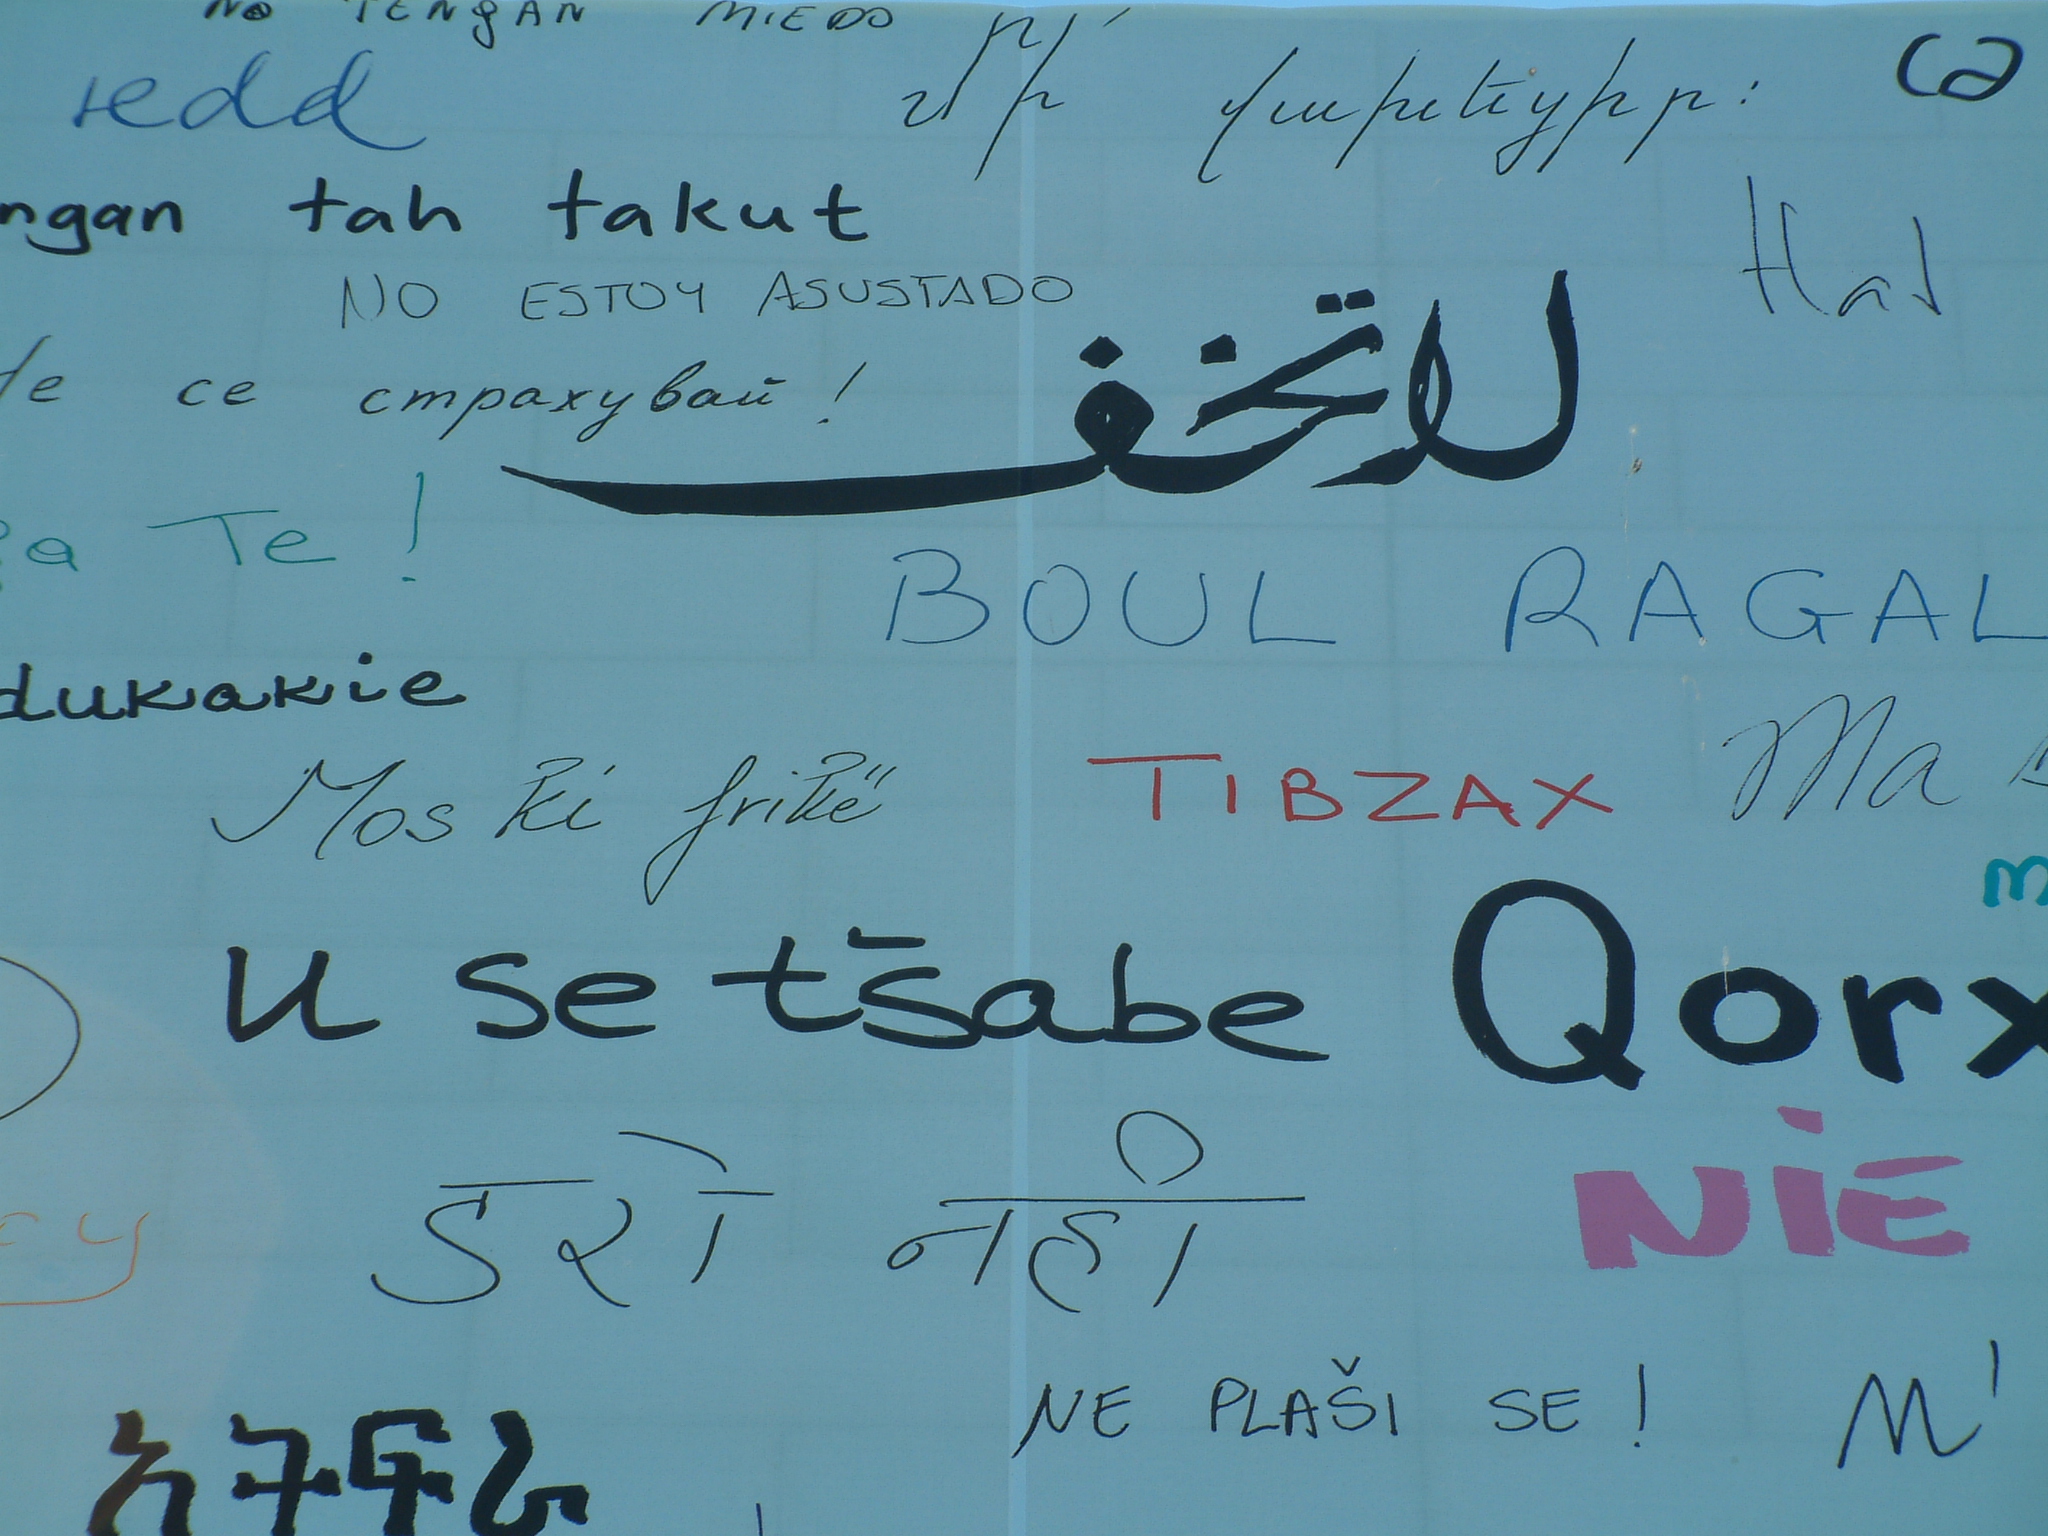 NO TENGAN MIEDO
redd
Մի վախեցիր:
ca
ngan tah takut
Hab
NO ESTOY ASUSTADO
لا تخف
се страхувай!
Te!
BOUL RAGAL
dukakie
Mos ki frikë
TIBZAX
Ma
U se tšabe
Qorx
डरो नही
NIE
NE PLAŠI SE!
M'
አትፍራ